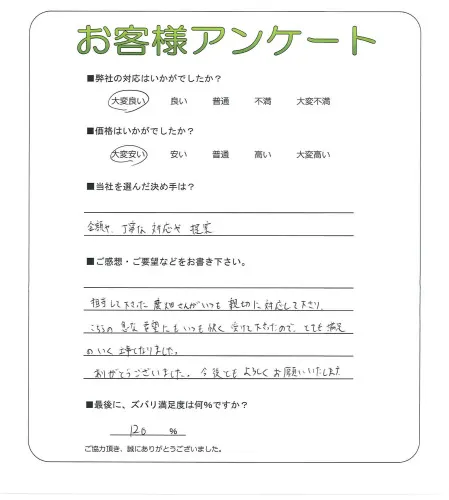 お客様アンケート
■弊社の対応はいかがでしたか？
大変良い 良い 普通 不満 大変不満
■価格はいかがでしたか？
大変安い 安い 普通 高い 大変高い
■当社を選んだ決め手は？
金額や、丁寧な対応や提案
■ご感想・ご要望などをお書き下さい。
担当して下さった 農畑さんがいつも 親切に対応して下さり、
こちらの 急な 要望にもいつも快く 受けて下さったので、とても 満足
のいく 工事になりました。
ありがとうございました。今後とも よろしくお願いいたします
■最後に、ズバリ満足度は何%ですか？
120 %
ご協力頂き、誠にありがとうございました。